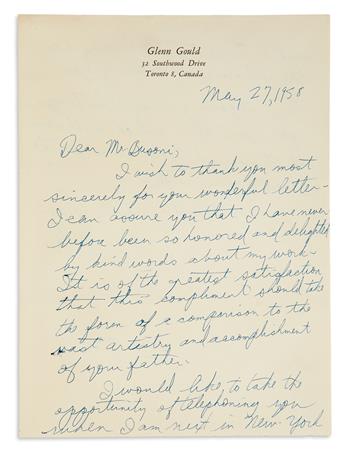 Glenn Gould
32 Southwood Drive
Toronto 8, Canada
May 27, 1958
Dear Mr Busoni,
I wish to thank you most
sincerely for your wonderful letter-
I can assure you that I have never
before been so honored and delighted
by kind words about my work.
It is of the greatest satisfaction
that this compliment should take
the form of a comparison to the
vast artistry and accomplishment
of your father.
I would like, to take the
opportunity of telephoning you
when I am next in New York